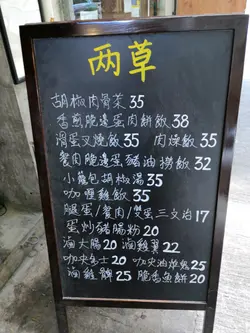 两草
胡椒肉骨茶 35
香煎脆邊蛋肉餅飯 38
滑蛋叉燒飯 35 肉燥飯 35
餐肉脆邊蛋豬油撈飯 32
小籠包胡椒湯 35
咖喱雞飯 35
腿蛋/餐肉/煲蛋三文治 17
蛋炒豬腸粉 20
滷大腸 20 滷雞翼 22
咖央多士 20 咖央油炸鬼 25
滷雞髀 25 脆香魚餅 20